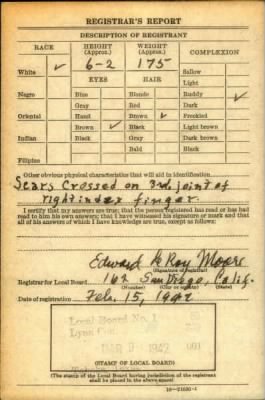 REGISTRAR'S REPORT
DESCRIPTION OF REGISTRANT
RACE HEIGHT (Approx.) WEIGHT (Approx.) COMPLEXION
6-2 175
White ✓ Sallow
EYES HAIR Light
Negro Blue Blonde Ruddy ✓
Gray Red Dark
Oriental Hazel Brown ✓ Freckled
Brown ✓ Black Light brown
Indian Black Gray Dark brown
Bald Black
Filipino
Other obvious physical characteristics that will aid in identification
Scars Crossed on 3rd joint of
right index finger
I certify that my answers are true; that the person registered has read or has had
read to him his own answers; that I have witnessed his signature or mark and that
all of his answers of which I have knowledge are true, except as follows:
Edward Moore
(Signature of registrar)
Registrar for Local Board 162 San Diego, Calif.
(Number) (City or county) (State)
Date of registration Feb. 15, 1942
Local Board No. 1
1942 001
(STAMP OF LOCAL BOARD)
(The stamp of the Local Board having jurisdiction of the registrant
shall be placed in the above space)